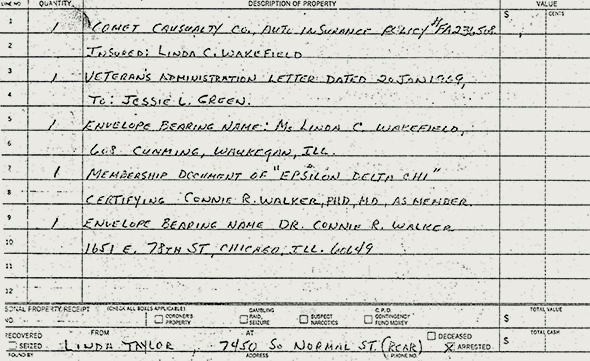 LINE NO QUANTITY DESCRIPTION OF PROPERTY VALUE
$ CENTS
1 1 COMET CAUSUALTY CO, AUTO INSURANCE POLICY
2 INSURED: LINDA C. WAKEFIELD
3 1 VETERANS ADMINISTRATION LETTER DATED 20 JAN 1969,
4 TO: JESSIE L. GREEN.
5 1 ENVELOPE BEARING NAME: Ms LINDA C. WAKEFIELD,
6 608 CUMMING, WAUKEGAN, ILL.
7 1 MEMBERSHIP DOCUMENT OF "EPSILON DELTA CHI"
8 CERTIFYING CONNIE R. WALKER, PHD, MD, AS MEMBER.
9 1 ENVELOPE BEARING NAME DR. CONNIE R. WALKER
10 1651 E. 78TH ST, CHICAGO, ILL. 60649
11
12
SONAL PROPERTY RECEIPT (CHECK ALL BOXES APPLICABLE) CORONER'S PROPERTY GAMBLING RAID, SEIZURE SUSPECT NARCOTICS C.P.D. CONTINGENCY FUND MONEY $ TOTAL VALUE
RECOVERED FROM AT DECEASED $ TOTAL CASH
SEIZED LINDA TAYLOR 7450 So NORMAL ST. (REAR) X ARRESTED
FOUND BY ADDRESS PHONE NO.